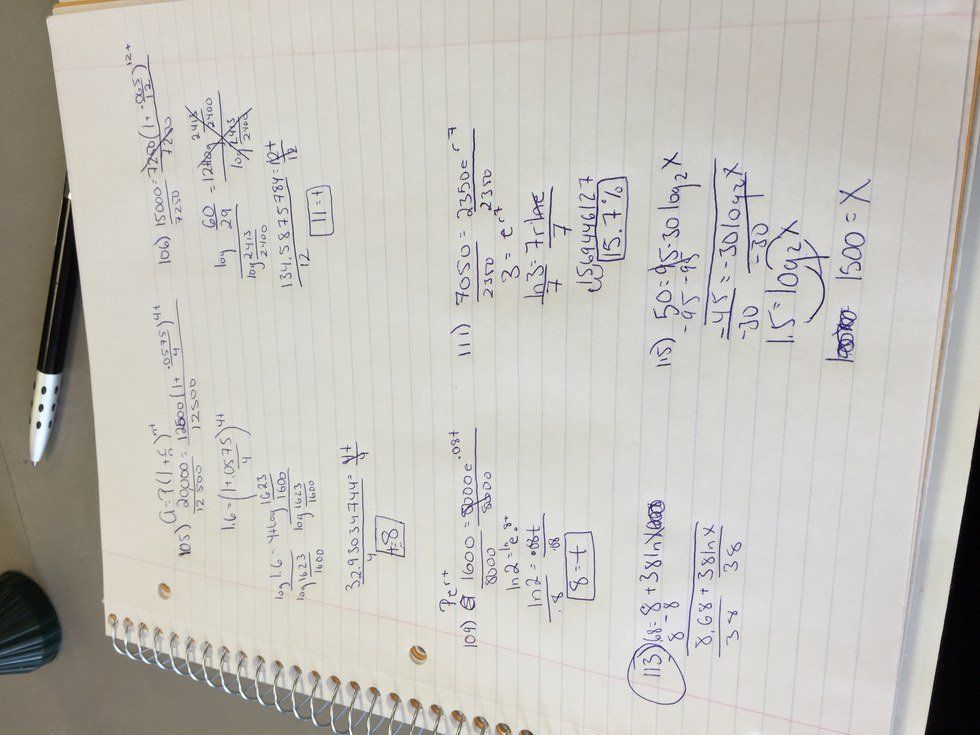 105) A=P(1+r/n)^nt
20,000/12500 = 12500(1+.0575/4)^4t/12500
1.6=(1+.0575/4)^4t
log 1.6/log 1623/1600 = 4tlog 1623/1600/log 1623/1600
32.93034744/4=4t/4
t=8
106) 15000/7250=7250(1+.065/12)^12t/7250
log 60/29/log 2413/2400 = 12tlog 2413/2400/log 2413/2400
134.5875784/12=12t/12
11=t
Pert
109) 1600/8000=8000e^.08t/8000
ln2=ln e^.8t
ln2/.8=.08t/.08
8=t
111) 7050/2350=2350e^r7/2350
3=e^r7
ln3/7=7rlne/7
.1569446127
15.7%
113) 68=8+38lnX
-8 -8
8.68/38+38lnX/38
115) 50=95-30log₂X
-95 -95
-45/-30=-30log₂X/-30
1.5=log₂X
1500=X